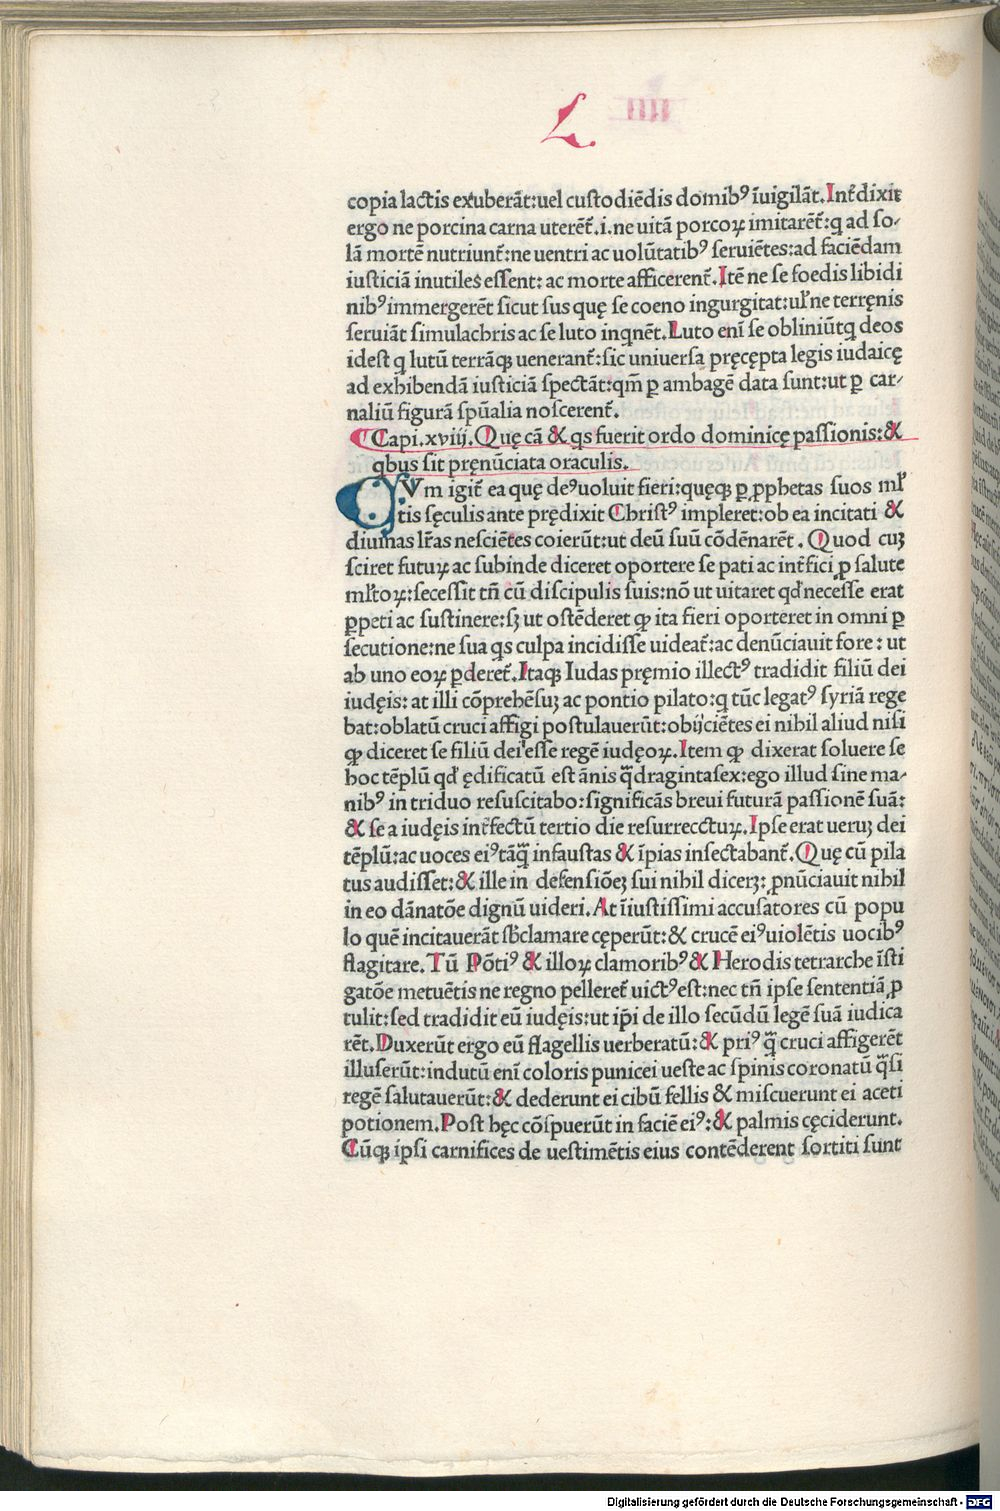 L.
copia lactis exuberāt:uel custodiēdis domibꝰ īuigilāt.Int̄dixit
ergo ne porcina carna uteret̄.i.ne uitā porcoꝝ imitaret̄:q ad so⸗
lā mortē nutriunt̄:ne uentri ac uolūtatibꝰ seruiētes:ad faciēdam
iusticiā inutiles essent: ac morte afficerent̄.Itē ne se foedis libidi
nibꝰ immergerēt sicut sus quę se coeno ingurgitat:ul̓ ne terręnis
seruiāt simulachris ac se luto inqnēt.Luto enī se obliniūtq deos
idest q lutū terrāqꝫ uenerant̄:sic uniuersa pręcępta legis iudaicę
ad exhibendā iusticiā spectāt:qm̄ ꝑ ambagē data sunt:ut ꝑ car⸗
naliū figurā sp̄ualia noscerent̄.
Capi.xviij.Quę cā & qs fuerit ordo dominicę passionis:&
qbus sit pręnūciata oraculis.
CVm igit̄ ea quę deꝰ uoluit fieri:quęqꝫ ꝑ ꝓphetas suos ml̓
tis sęculis ante prędixit Christꝰ impleret:ob ea incitati &
diuinas lr̄as nesciētes coierūt:ut deū suū cōdēnarēt. Quod cuꝫ
sciret futuꝝ ac subinde diceret oportere se pati ac int̄fici ꝓ salute
ml̓toꝝ:secessit tn̄ cū discipulis suis:nō ut uitaret qd̓ necesse erat
ꝑpeti ac sustinere:sꝫ ut ostēderet ꝙ ita fieri oporteret in omni ꝑ
secutione:ne sua qs culpa incidisse uideat̄:ac denūciauit fore: ut
ab uno eoꝝ ꝑderet̄.Itaqꝫ Iudas pręmio illectꝰ tradidit filiū dei
iudęis: at illi cōprehēsuꝫ ac pontio pilato:q tūc legatꝰ syriā rege
bat:oblatū cruci affigi postulauerūt:obijciētes ei nihil aliud nisi
ꝙ diceret se filiū dei esse regē iudęoꝝ.Item ꝙ dixerat soluere se
hoc tēplū qd̓ ędificatū est ānis qᷓdragintasex:ego illud sine ma⸗
nibꝰ in triduo resuscitabo:significās breui futurā passionē suā:
& se a iudęis int̄fectū tertio die resurrecctuꝝ.Ipse erat ueruꝫ dei
tēplū:ac uoces eiꝰ tāqᷓ infaustas & īpias insectabant̄.Quę cū pila
tus audisset:& ille in defensiōeꝫ sui nihil dicerꝫ: ꝓnūciauit nihil
in eo dānatōe dignū uideri.At īiustissimi accusatores cū popu
lo quē incitauerāt sb̓clamare cęperūt:& crucē eiꝰ uiolētis uocibꝰ
flagitare.Tū Pōtiꝰ & illoꝝ clamoribꝰ & Herodis tetrarche īsti
gatōe metuētis ne regno pelleret̄ uictꝰ est:nec tn̄ ipse sententiā ꝓ
tulit:sed tradidit eū iudęis:ut ip̄i de illo secūdū legē suā iudica
rēt.Duxerūt ergo eū flagellis uerberatū:& priꝰ qᷓ cruci affigerēt
illuserūt:indutū enī coloris punicei ueste ac spinis coronatū qᷓsi
regē salutauerūt:& dederunt ei cibū fellis & miscuerunt ei aceti
potionem.Post hęc cōspuerūt in faciē eiꝰ:& palmis cęciderunt.
Cūqꝫ ipsi carnifices de uestimētis eius contēderent sortiti sunt
Digitalisierung gefördert durch die Deutsche Forschungsgemeinschaft - DFG